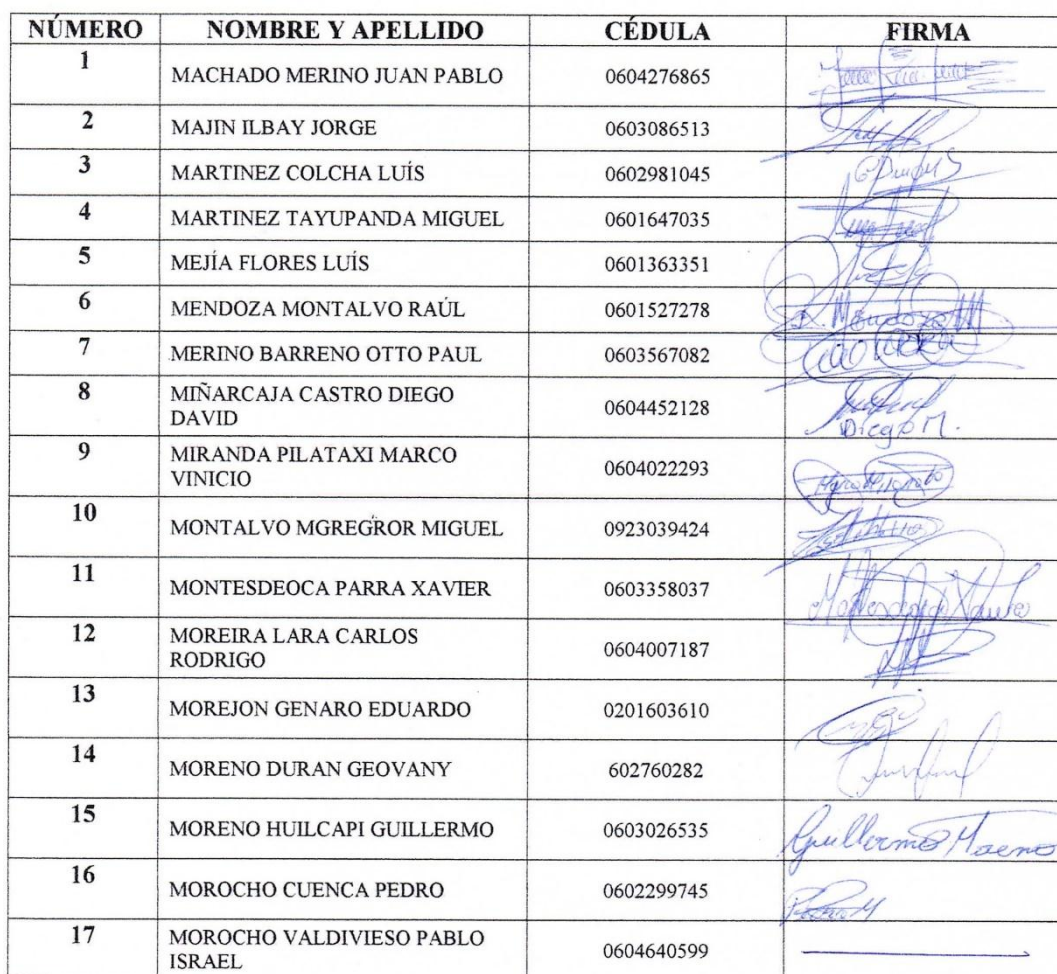 NÚMERO NOMBRE Y APELLIDO CÉDULA FIRMA
1 MACHADO MERINO JUAN PABLO 0604276865
2 MAJIN ILBAY JORGE 0603086513
3 MARTINEZ COLCHA LUÍS 0602981045
4 MARTINEZ TAYUPANDA MIGUEL 0601647035
5 MEJÍA FLORES LUÍS 0601363351
6 MENDOZA MONTALVO RAÚL 0601527278 R. Mendoza M
7 MERINO BARRENO OTTO PAUL 0603567082
8 MIÑARCAJA CASTRO DIEGO
DAVID 0604452128 Diego M.
9 MIRANDA PILATAXI MARCO
VINICIO 0604022293
10 MONTALVO MGREGROR MIGUEL 0923039424
11 MONTESDEOCA PARRA XAVIER 0603358037
12 MOREIRA LARA CARLOS
RODRIGO 0604007187
13 MOREJON GENARO EDUARDO 0201603610
14 MORENO DURAN GEOVANY 602760282
15 MORENO HUILCAPI GUILLERMO 0603026535 Guillermo Moreno
16 MOROCHO CUENCA PEDRO 0602299745
17 MOROCHO VALDIVIESO PABLO
ISRAEL 0604640599